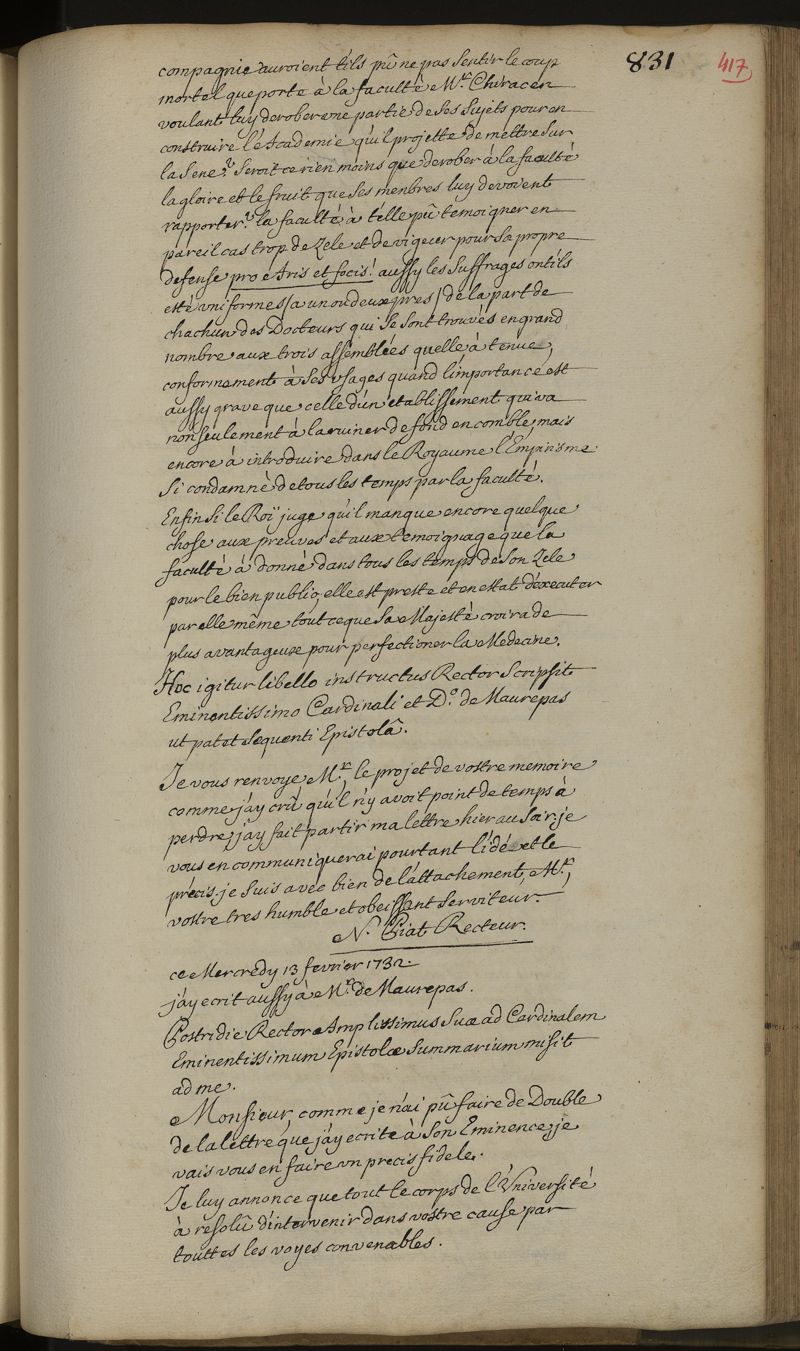 831 417
compagnie auroient t'ils pû ne pas sentir le coup
mortel que porte à la faculté Mr. Chirac en
voulant luy derober une partie de ses sujets pour en
construire l'Academie qu'il projette de mettre sur
la Sene? Seroit ce rien moins que derober à la faculté
la gloire et le fruit que ses menbres luy devoient
rapporter? la faculté à t'elle pû temoigner en
pareil cas trop de Zele et de vigeur pour sa propre
defense pro Aris et focis! aussy les suffrages ont ils
esté vniformes (a un ou deux pres) de la part de
chachun des Docteurs qui se sont trouvés en grand
nombre aux trois assemblées quelle à tenue,
conformement à ses vsages quand limportance est
aussy grave que celle d'un etablissement qui va
non seulement à la ruiner de fond en comble, mais
encore à introduire dans le Royaume l'Empirisme
si condamné de tous les temps par la faculté.
Enfin si le Roï juge qu'il manque encore quelque
chose aux preuves et aux temoignage que la
faculté à donné dans tous les temps de son Zele
pour le bien public, elle est preste et en estat d'executer
par elle même tout ce que Sa Majesté croira de
plus avantageux pour perfectioner la Medecine.
Hoc igitur libello instructus Rector Scripsit
Eminentissimo Cardinali et D.o de Maurepas
ut patet sequenti Epistolâ.
Je vous renvoye Mr. le projet de vostre memoire
comme j'ay crû qu'il n'y avoit point de temps à
perdre, j'ay fait partir ma lettre hier au soir. je
vous en communiquerai pourtant l'idé et le
précis. je suis avec bien de l'attachement, Mr.,
vostre tres humble et obeissant serviteur.
N. Piat Recteur.
ce Mercredy 13 fevrier 1732.
j'ay ecrit aussy à Mr. de Maurepas.
Postridie Rector Amplissimus suæ ad Cardinalem
Eminentissimum Epistolæ summarium misit
ad me.
Monsieur, comme je n'ai pû faire de Double
de la lettre que j'ay ecrite à Son Eminence, je
vais vous en faire vn precis fidele.
Je luy annonce que tout le corps de l'Vniversité
à resolû d'intervenir dans vostre cause par
touttes les voyes convenables.